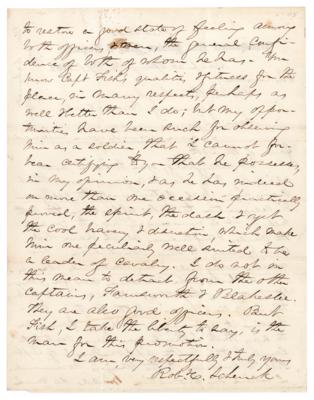 to restore a good state of feeling among
both officers & men, the general confi-
dence of both of whom he has. You
know Capt Fish's qualities & fitness for the
place, in many respects, perhaps as
well & better than I do; but my oppor-
tunities have been such for observing
him as a soldier, that I cannot for-
bear certifying to you that he possesses,
in my opinion, & as he has indeed
on more than one occasion practically
proved, the spirit, the dash & yet
the cool bravery & discretion, which make
him one peculiarly well suited to be
a leader of cavalry. I do not in
this mean to detract from the other
captains, Farnsworth & Blakeslee.
They are also good officers. But
Fish, I take the liberty to say, is the
man for this promotion.
I am, very respectfully & truly yours
Rob. C. Schenck